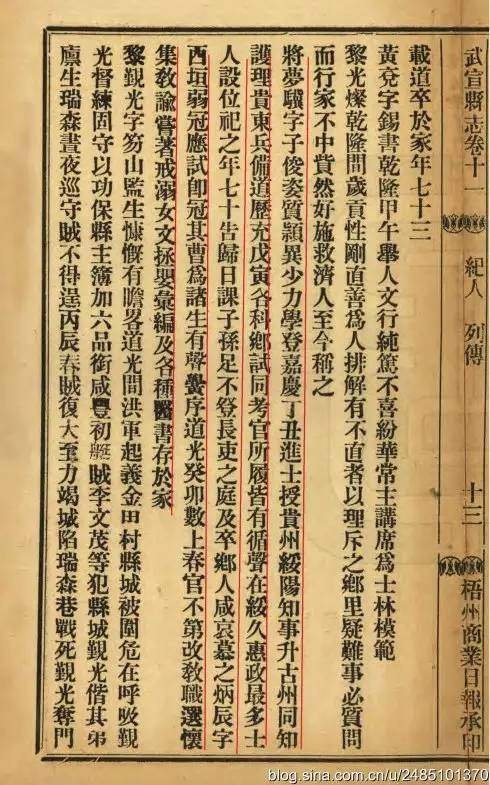 武宣縣志卷十一
紀人
列傳
十三
梧州商業日報承印
載道卒於家年七十三
黃兗字錫書乾隆甲午舉人文行純篤不喜紛華常主講席爲士林模範
黎光燦乾隆間歲貢性剛直善爲人排解有不直者以理斥之鄉里疑難事必質問
而行家不中貲然好施救濟人至今稱之
將夢驥字子俊姿質頴異少力學登嘉慶丁丑進士授貴州綏陽知事升古州同知
護理貴東兵備道歷充戊寅各科鄉試同考官所履皆有循聲在綏久惠政最多士
人設位祀之年七十告歸日課子孫足不登長吏之庭及卒鄉人咸哀慕之炳辰字
西垣弱冠應試卽冠其曹爲諸生有聲黌序道光癸卯數上春官不第改教職選懷
集教諭嘗著戒溺女文拯嬰彙編及各種醫書存於家
黎覲光字笏山監生慷慨有膽畧道光間洪軍起義金田村縣城被圍危在呼吸覲
光督練固守以功保縣主簿加六品銜咸豐初艇賊李文茂等犯縣城覲光偕其弟
廩生瑞森晝夜巡守賊不得逞丙辰春賊復大至力竭城陷瑞森巷戰死覲光奪門
blog.sina.com.cn/u/2485101370